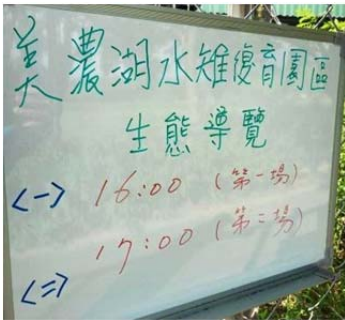 美濃湖水雉復育園區
生態導覽
<一> 16:00 (第一場)
<二> 17:00 (第二場)